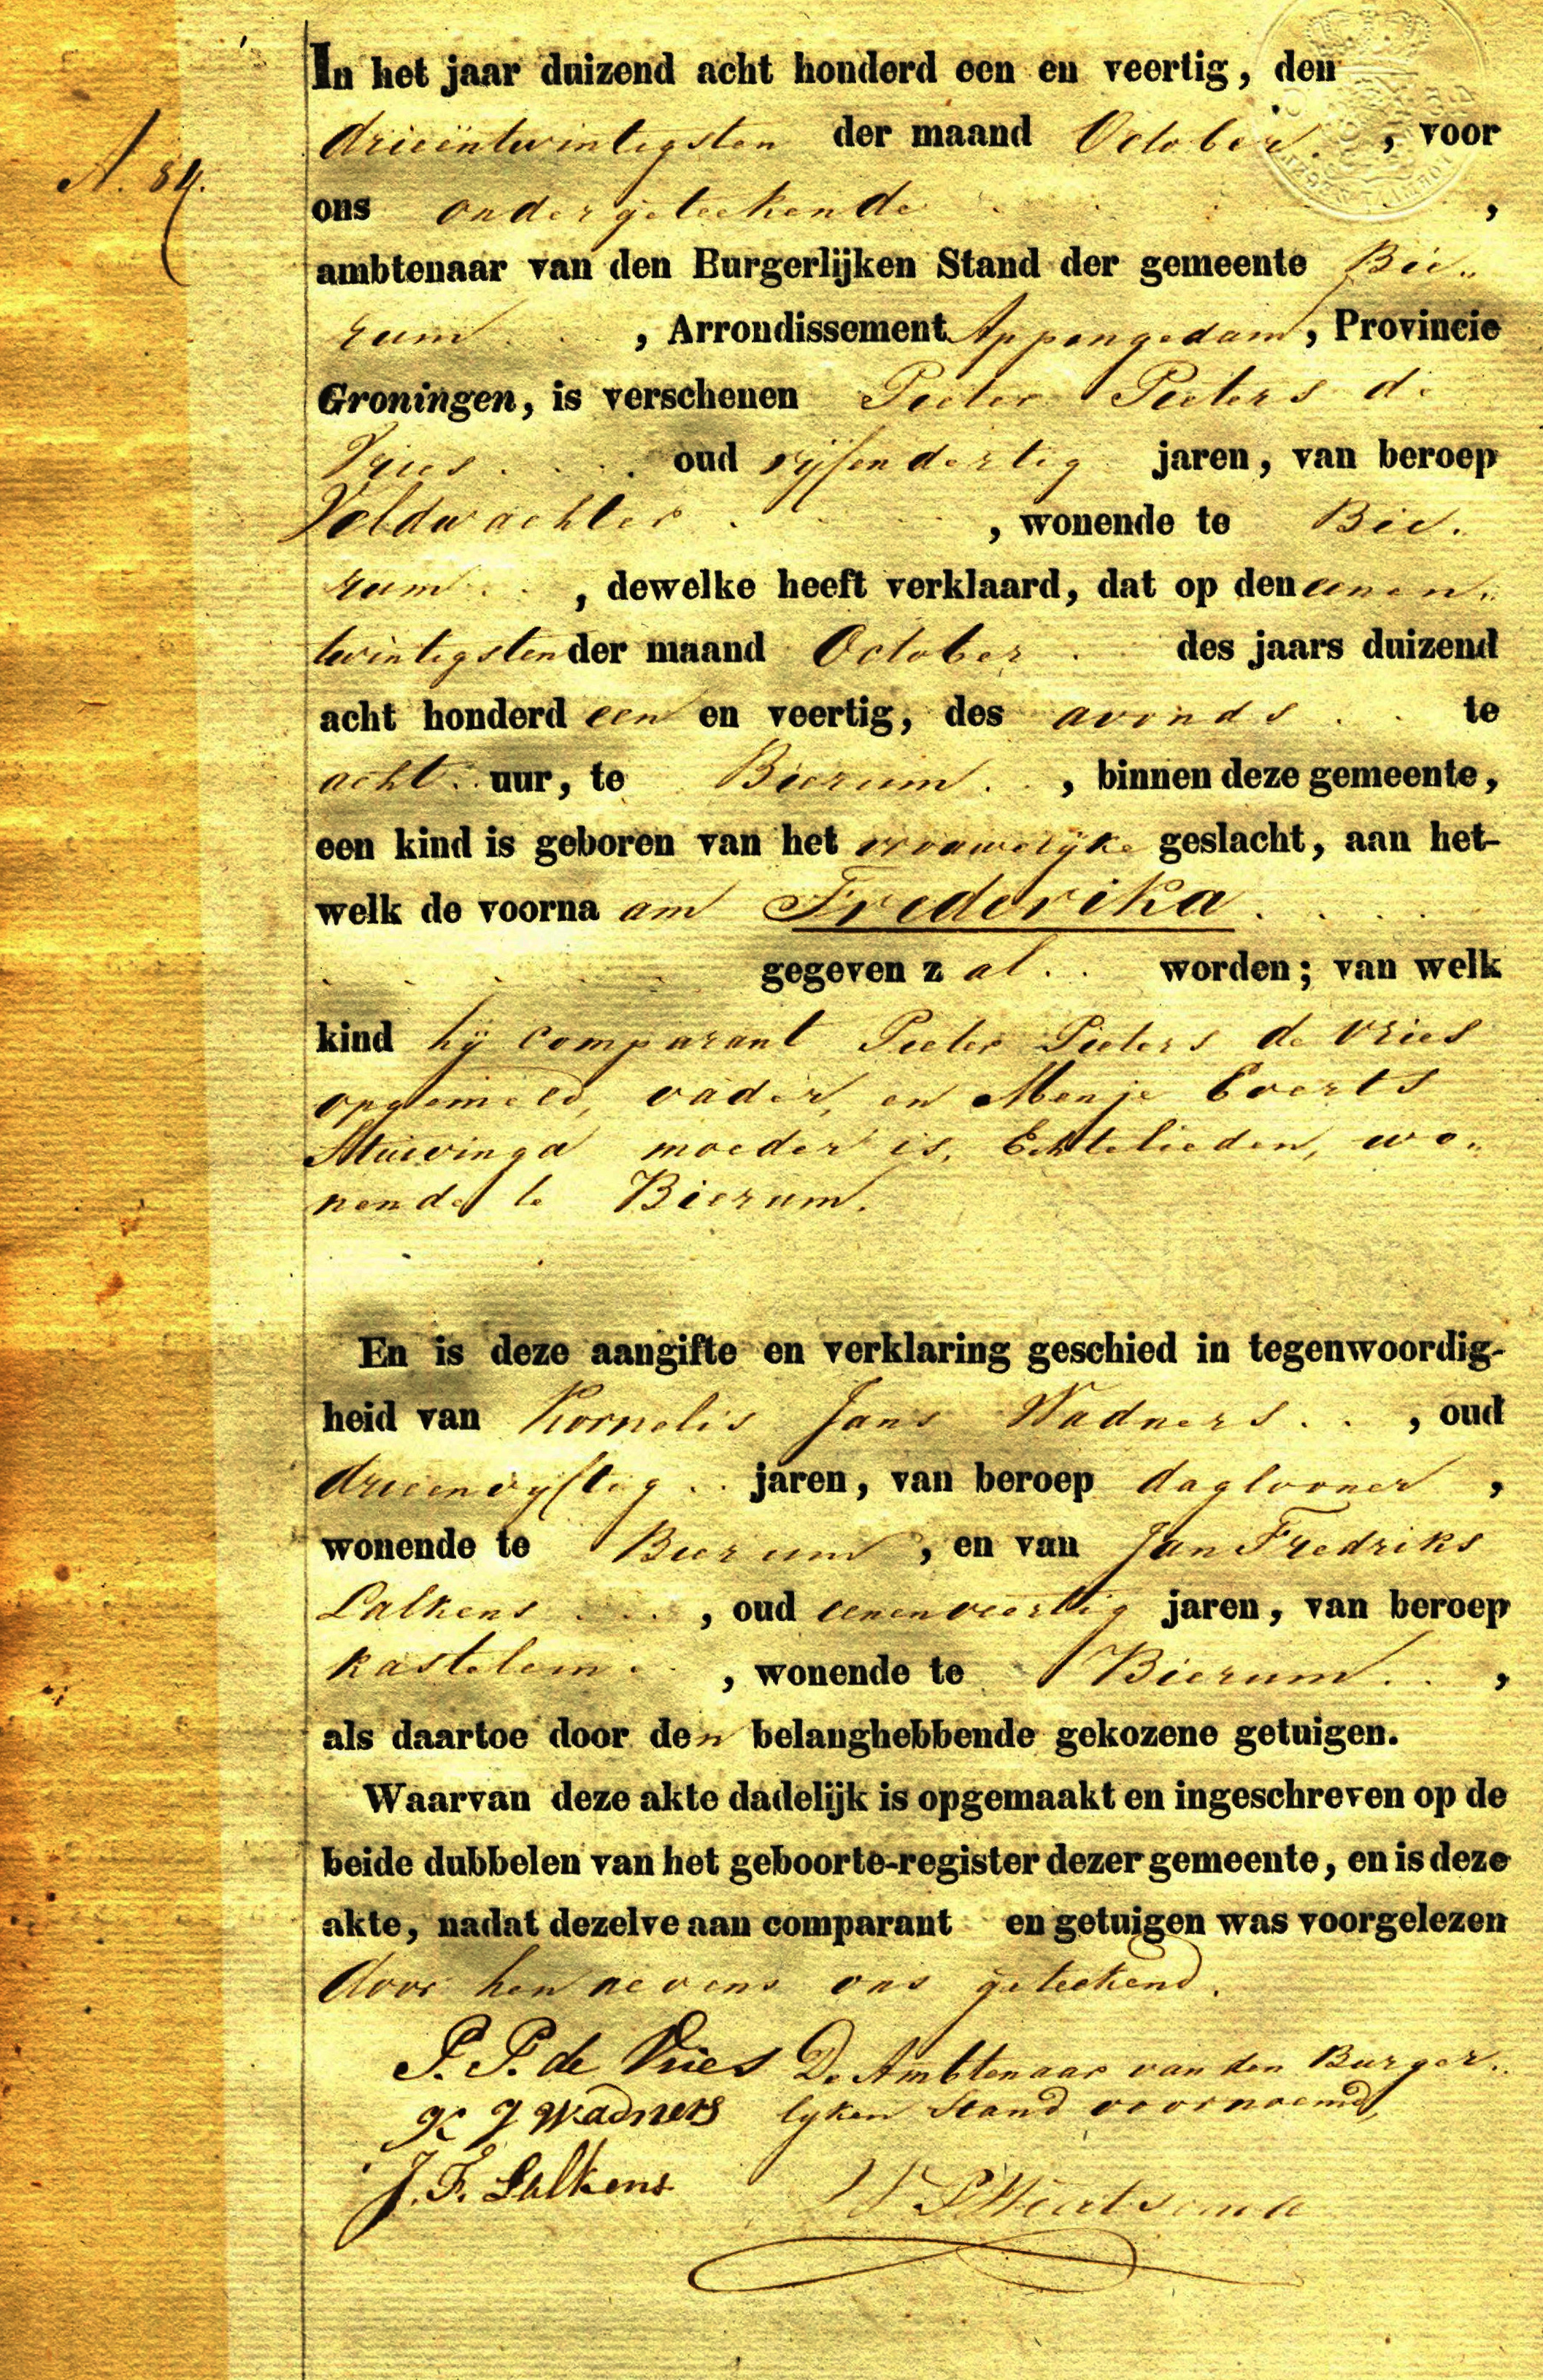 In het jaar duizend acht honderd een en veertig, den
A. 84.
drieëntwintigsten der maand October, voor
ons ondergeteekende,
ambtenaar van den Burgerlijken Stand der gemeente Bie„
rum, Arrondissement Appingedam, Provincie
Groningen, is verschenen Pieter Pieters de
Vries oud vijfendertig jaren, van beroep
Veldwachter, wonende te Bie„
rum, dewelke heeft verklaard, dat op den eenen„
twintigsten der maand October des jaars duizend
acht honderd een en veertig, des avonds te
acht uur, te Bierum, binnen deze gemeente,
een kind is geboren van het vrouwelijke geslacht, aan het-
welk de voorna am Frederika
gegeven z al worden; van welk
kind hij comparant Pieter Pieters de Vries
opgemeld, vader, en Menje Everts
Stuivinga moeder is, Echtelieden, wo„
nende te Bierum.
En is deze aangifte en verklaring geschied in tegenwoordig-
heid van Kornelis Jans Wadners, oud
drieenvijftig jaren, van beroep daglooner,
wonende te Bierum, en van Jan Fredriks
Lalkens, oud eenenveertig jaren, van beroep
kastelein, wonende te Bierum,
als daartoe door den belanghebbende gekozene getuigen.
Waarvan deze akte dadelijk is opgemaakt en ingeschreven op de
beide dubbelen van het geboorte-register dezer gemeente, en is deze
akte, nadat dezelve aan comparant en getuigen was voorgelezen
door hen nevens ons geteekend.
P. P. de Vries De Ambtenaar van den Burger„
K J Wadners lijken Stand voornoemd,
J. F. Lalkens